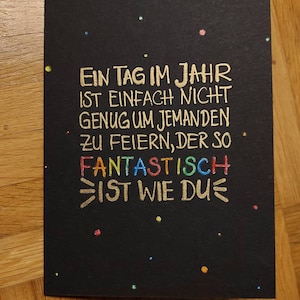 EIN TAG IM JAHR
IST EINFACH NICHT
GENUG UM JEMANDEN
ZU FEIERN, DER SO
FANTASTISCH
IST WIE DU